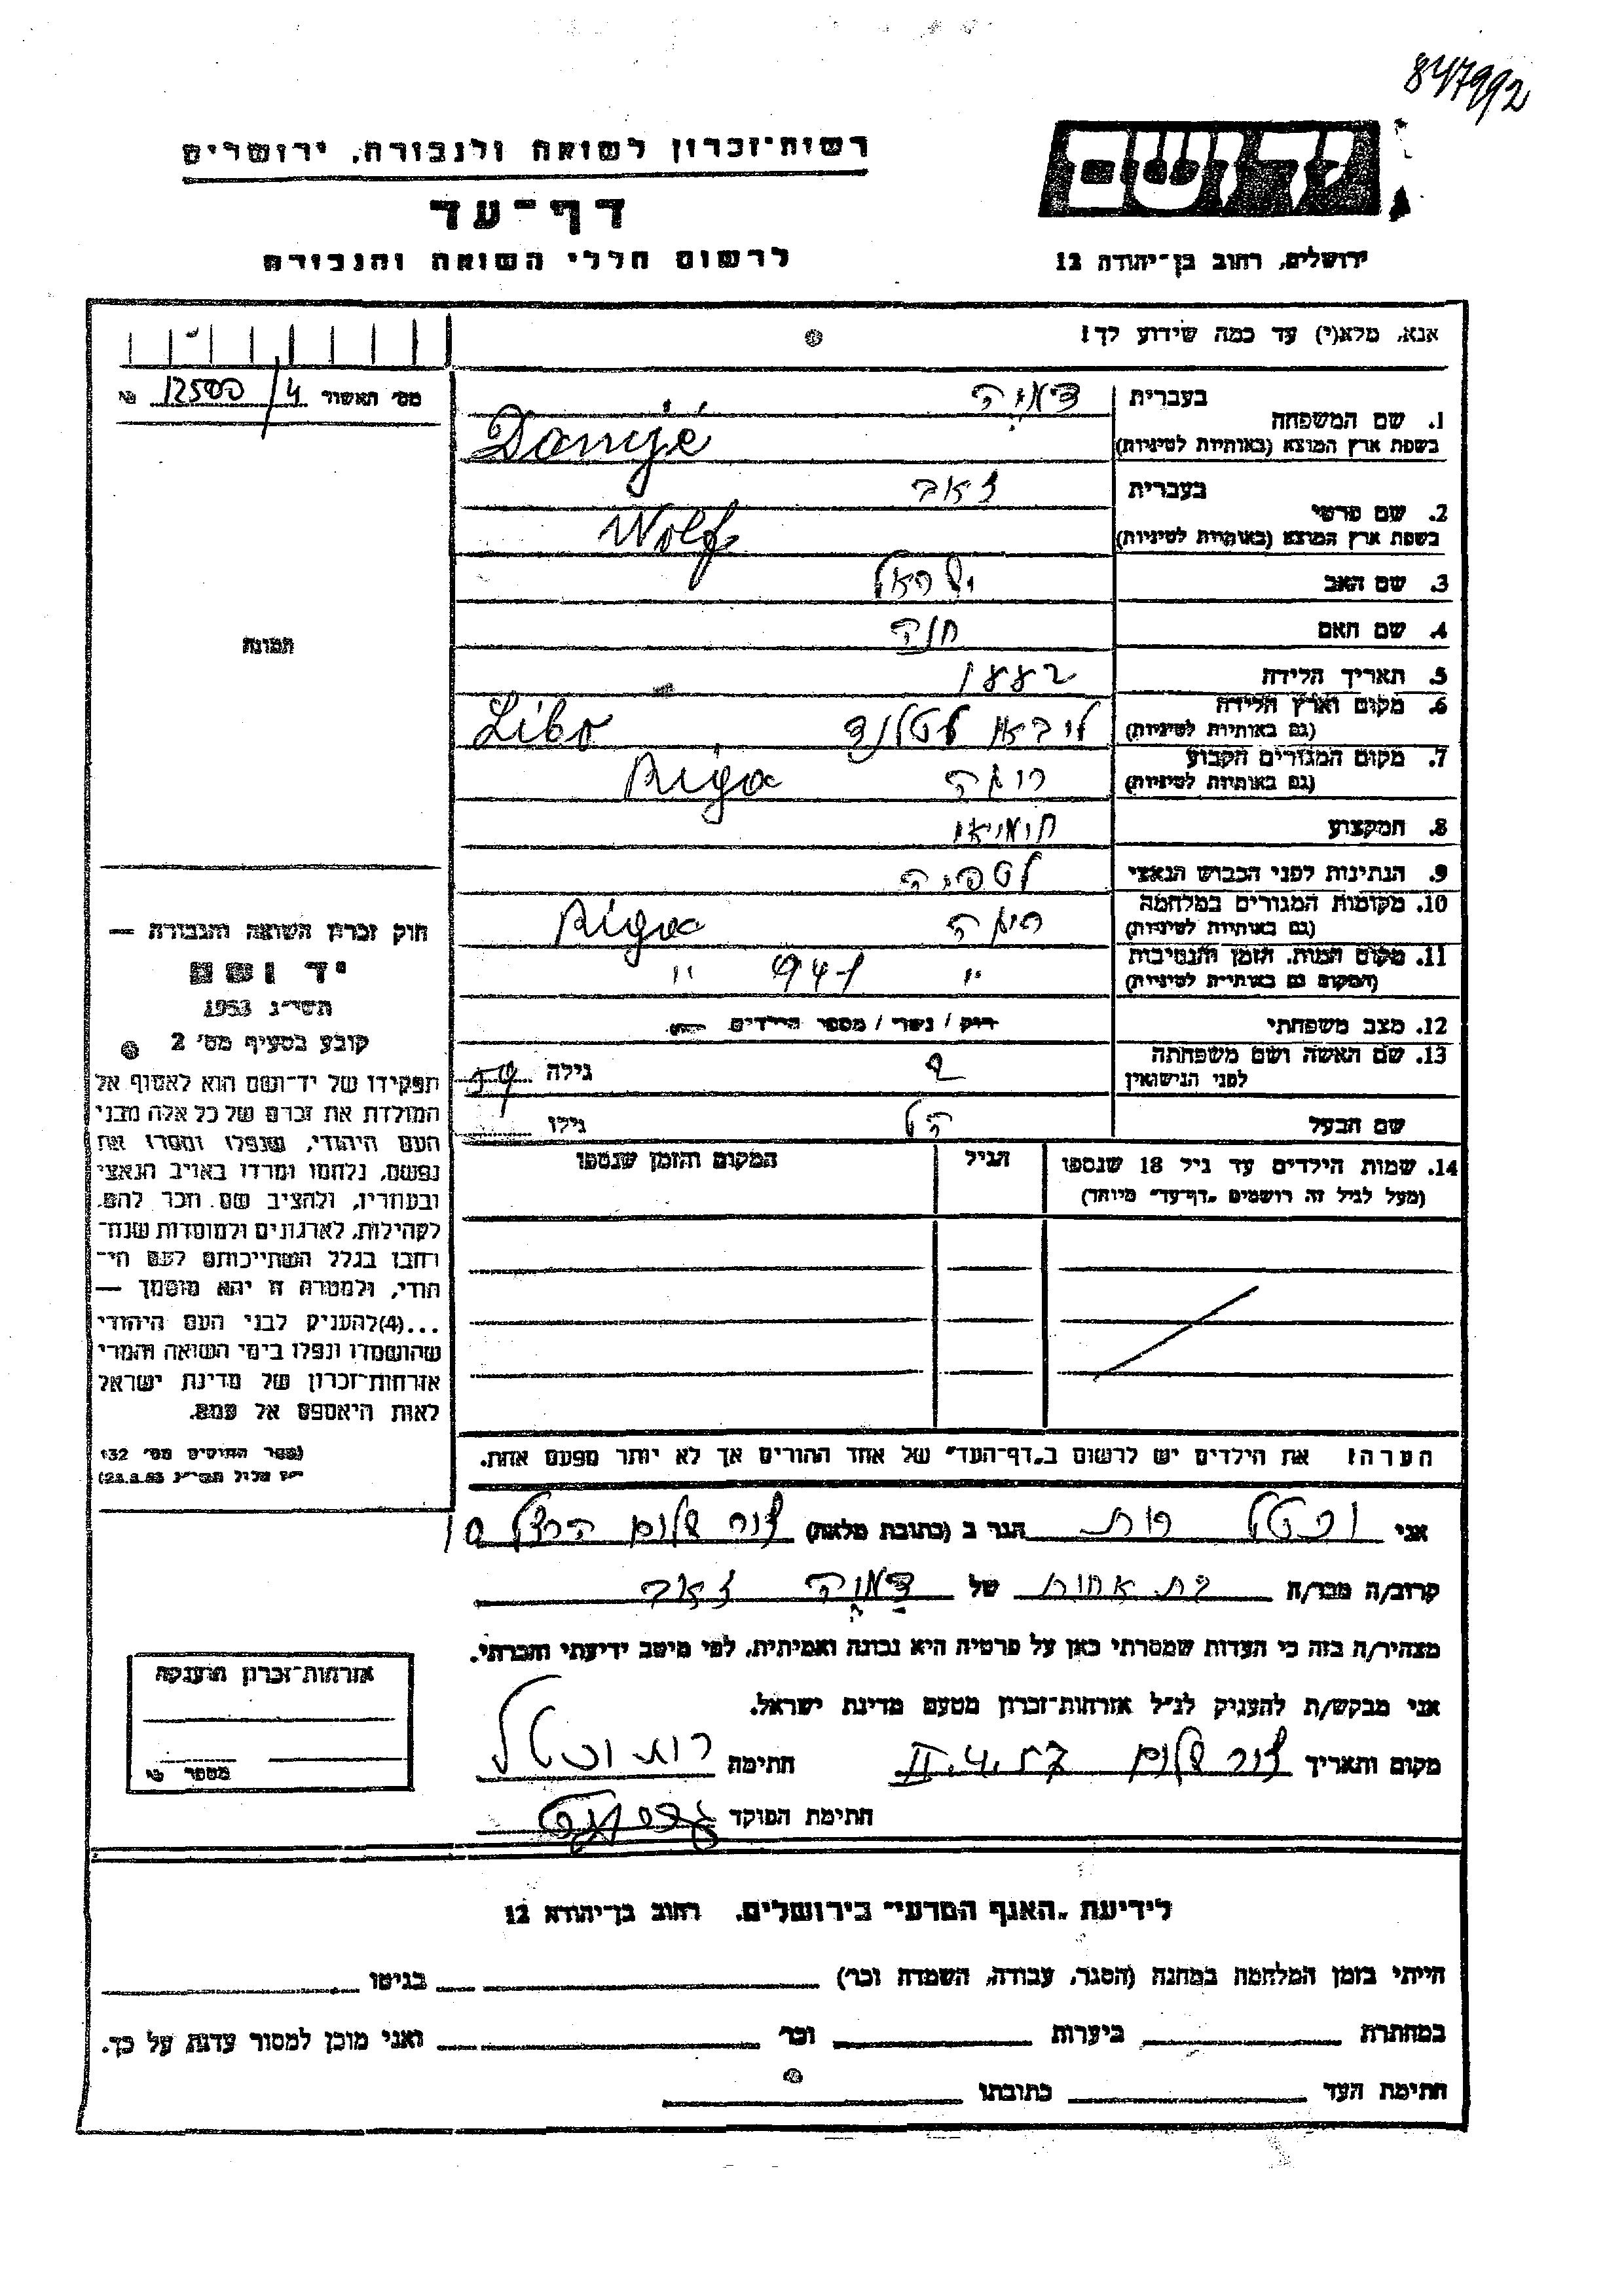 847992
רשות־זכרון לשואה ולגבורה, ירושלים
יד ושם
דף־עד
לרשום חללי השואה והגבורה
ירושלים, רחוב בן־יהודה 12
אנא, מלא(י) עד כמה שידוע לך!
מס' האשור 12500/4 №
1. שם המשפחה
בעברית
בשפת ארץ המוצא (באותיות לטיניות)
2. שם פרטי
בעברית זאב
בשפת ארץ המוצא (באותיות לטיניות) Wolf
3. שם האב ישראל
4. שם האם חנה
5. תאריך הלידה 1882
6. מקום וארץ הלידה ליבאו לטלנד Libo
(גם באותיות לטיניות)
7. מקום המגורים הקבוע ריגה Riga
(גם באותיות לטיניות)
8. המקצוע
9. הנתינות לפני הכבוש הנאצי לטביה
10. מקומות המגורים במלחמה ריגה Riga
(גם באותיות לטיניות)
11. מקום המות, הזמן והנסיבות " 941 "
(המקום גם באותיות לטיניות)
12. מצב משפחתי רווק / נשוי / מספר הילדים
13. שם האשה ושם משפחתה
לפני הנישואין ? גילה 59
שם הבעל גילו
14. שמות הילדים עד גיל 18 שנספו הגיל המקום והזמן שנספו
(מעל לגיל זה רושמים „דף־עד" מיוחד)
הערה! את הילדים יש לרשום ב„דף־העד" של אחד ההורים אך לא יותר מפעם אחת.
תמונה
חוק זכרון השואה והגבורה —
יד ושם
תשי״ג 1953
קובע בסעיף מס' 2
תפקידו של יד־ושם הוא לאסוף אל
המולדת את זכרם של כל אלה מבני
העם היהודי, שנפלו ומסרו את
נפשם, נלחמו ומרדו באויב הנאצי
ובעוזריו, ולהציב שם וזכר להם,
לקהילות, לארגונים ולמוסדות שנח־
רבו בגלל השתייכותם לעם הי־
הודי, ולמטרה זו יהא מוסמך —
...(4)להעניק לבני העם היהודי
שהושמדו ונפלו בימי השואה והמרי
אזרחות־זכרון של מדינת ישראל
לאות היאספם אל עמם.
(ספר החוקים מס' 132
י״ז אלול תשי״ג 28.8.53)
אני וכטל רות הגר ב (כתובת מלאה) צור שלום הרצל 10
קרוב/ה מכר/ה בת אחות של זאב
מצהיר/ה בזה כי העדות שמסרתי כאן על פרטיה היא נכונה ואמיתית, לפי מיטב ידיעתי והכרתי.
אני מבקש/ת להעניק לנ״ל אזרחות־זכרון מטעם מדינת ישראל.
מקום ותאריך צור שלום II.4.57 חתימה רות וכטל
חתימת הפוקד
אזרחות־זכרון הוענקה
מספר
לידיעת „האגף המדעי" בירושלים, רחוב בן־יהודה 12
הייתי בזמן המלחמה במחנה (הסגר, עבודה, השמדה וכו') בגיטו
במחתרת ביערות וכו' ואני מוכן למסור עדות על כך.
חתימת העד כתובתו